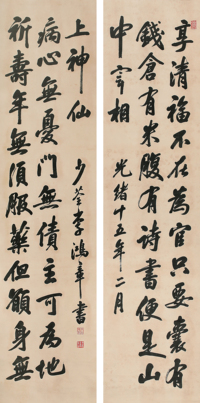 享清福不在為官只要囊有
錢倉有米腹有詩書便是山
中宰相
光緒十五年二月
祈壽年無須服藥但願身無
病心無憂門無債主可為地
上神仙
少荃李鴻章書